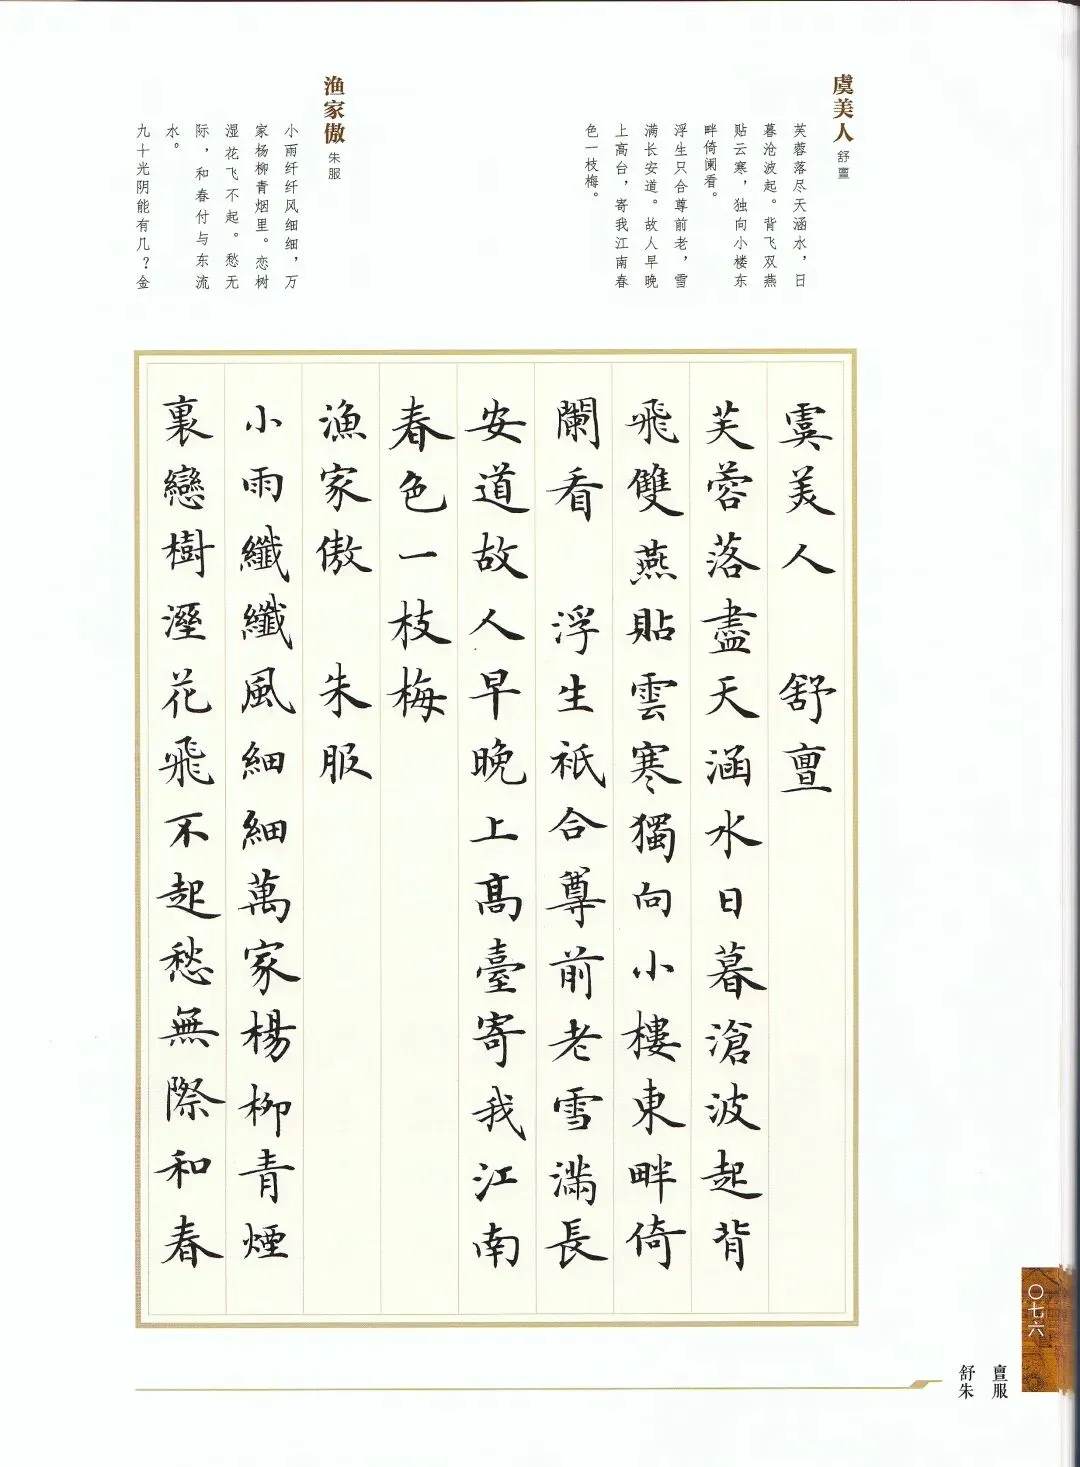 虞美人 舒亶
芙蓉落尽天涵水，日
暮沧波起。背飞双燕
贴云寒，独向小楼东
畔倚阑看。
浮生只合尊前老，雪
满长安道。故人早晚
上高台，寄我江南春
色一枝梅。
渔家傲 朱服
小雨纤纤风细细，万
家杨柳青烟里。恋树
湿花飞不起。愁无
际，和春付与东流
水。
九十光阴能有几？金
虞美人 舒亶
芙蓉落盡天涵水日暮滄波起背
飛雙燕貼雲寒獨向小樓東畔倚
闌看 浮生衹合尊前老雪滿長
安道故人早晚上高臺寄我江南
春色一枝梅
漁家傲 朱服
小雨纖纖風細細萬家楊柳青煙
裏戀樹溼花飛不起愁無際和春
〇七六
舒亶
朱服